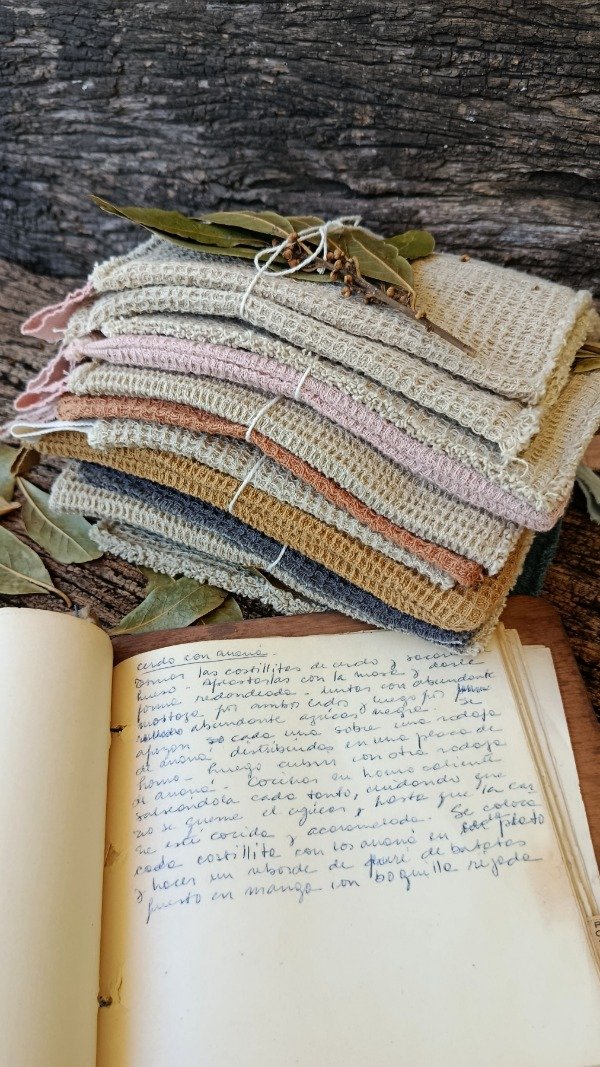 cerdo con ananá.
Tomar las costillitas de cerdo y sacarle
hueso. Aplastarlas con la maza y darle
forma redondeada. Untar con abundante
mostaza por ambos lados luego por
abundante azúcar negra. Se
apoyan cada una sobre una rodaja
de ananá distribuidas en una placa de
horno. Luego cubrir con otra rodaja
de ananá. Cocinar en horno caliente
salseándola cada tanto, cuidando que
no se queme el azúcar y hasta que la car
ne esté cocida y acaramelada. Se coloca
cada costillita con los ananá en plato
y hacer un reborde de puré de batatas
puesto en manga con boquilla rizada